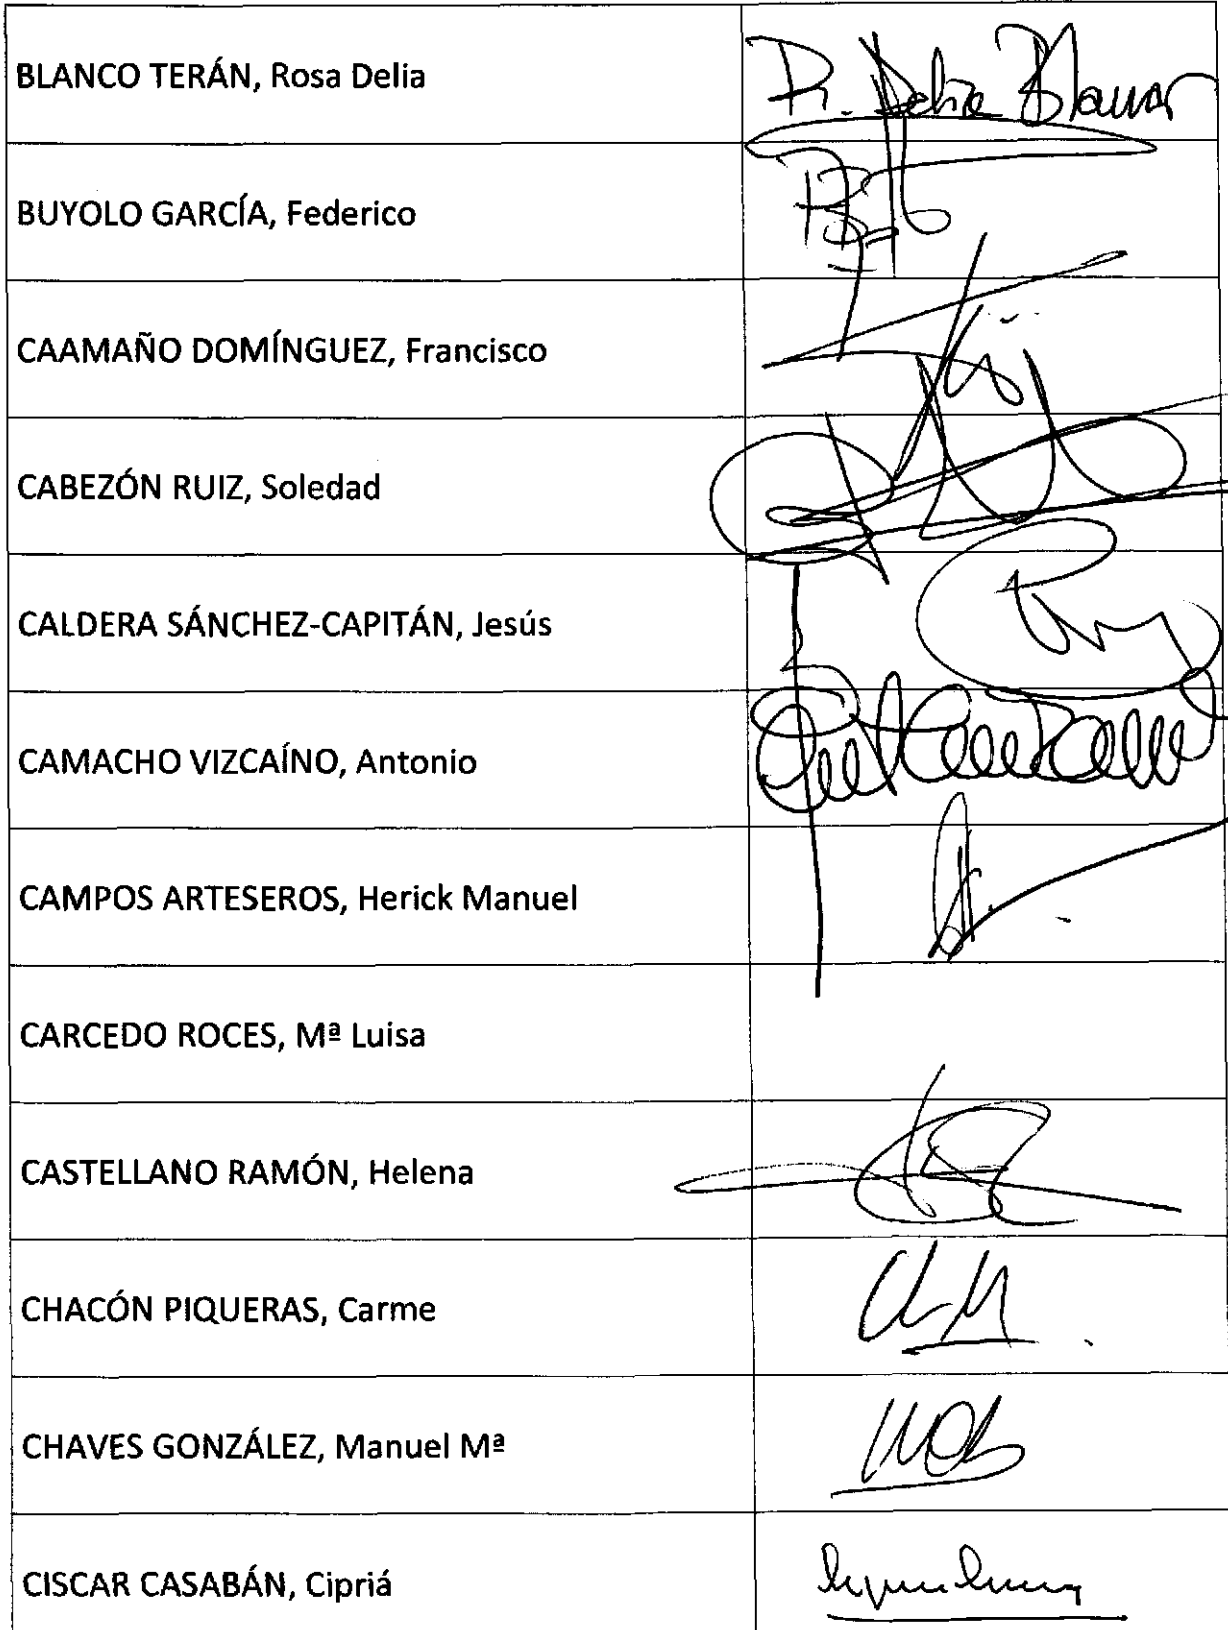 BLANCO TERÁN, Rosa Delia
R. Delia Blanco
BUYOLO GARCÍA, Federico
CAAMAÑO DOMÍNGUEZ, Francisco
CABEZÓN RUIZ, Soledad
CALDERA SÁNCHEZ-CAPITÁN, Jesús
CAMACHO VIZCAÍNO, Antonio
CAMPOS ARTESEROS, Herick Manuel
CARCEDO ROCES, Mª Luisa
CASTELLANO RAMÓN, Helena
CHACÓN PIQUERAS, Carme
CHAVES GONZÁLEZ, Manuel Mª
CISCAR CASABÁN, Cipriá